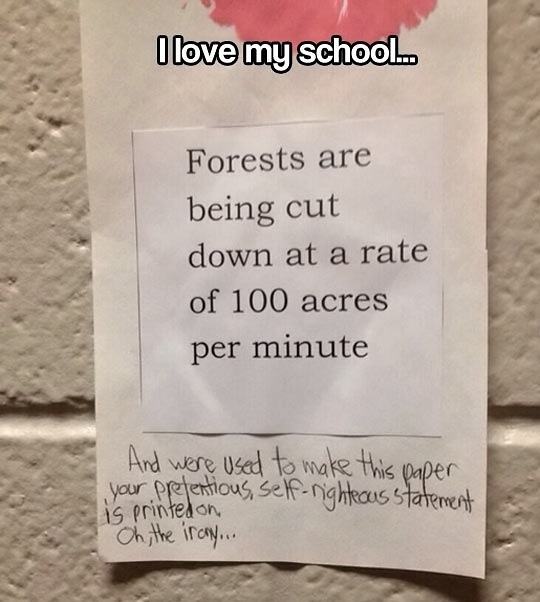 I love my school...
Forests are
being cut
down at a rate
of 100 acres
per minute
And were used to make this paper
your pretentious, self-righteous statement
is printed on.
Oh, the irony...